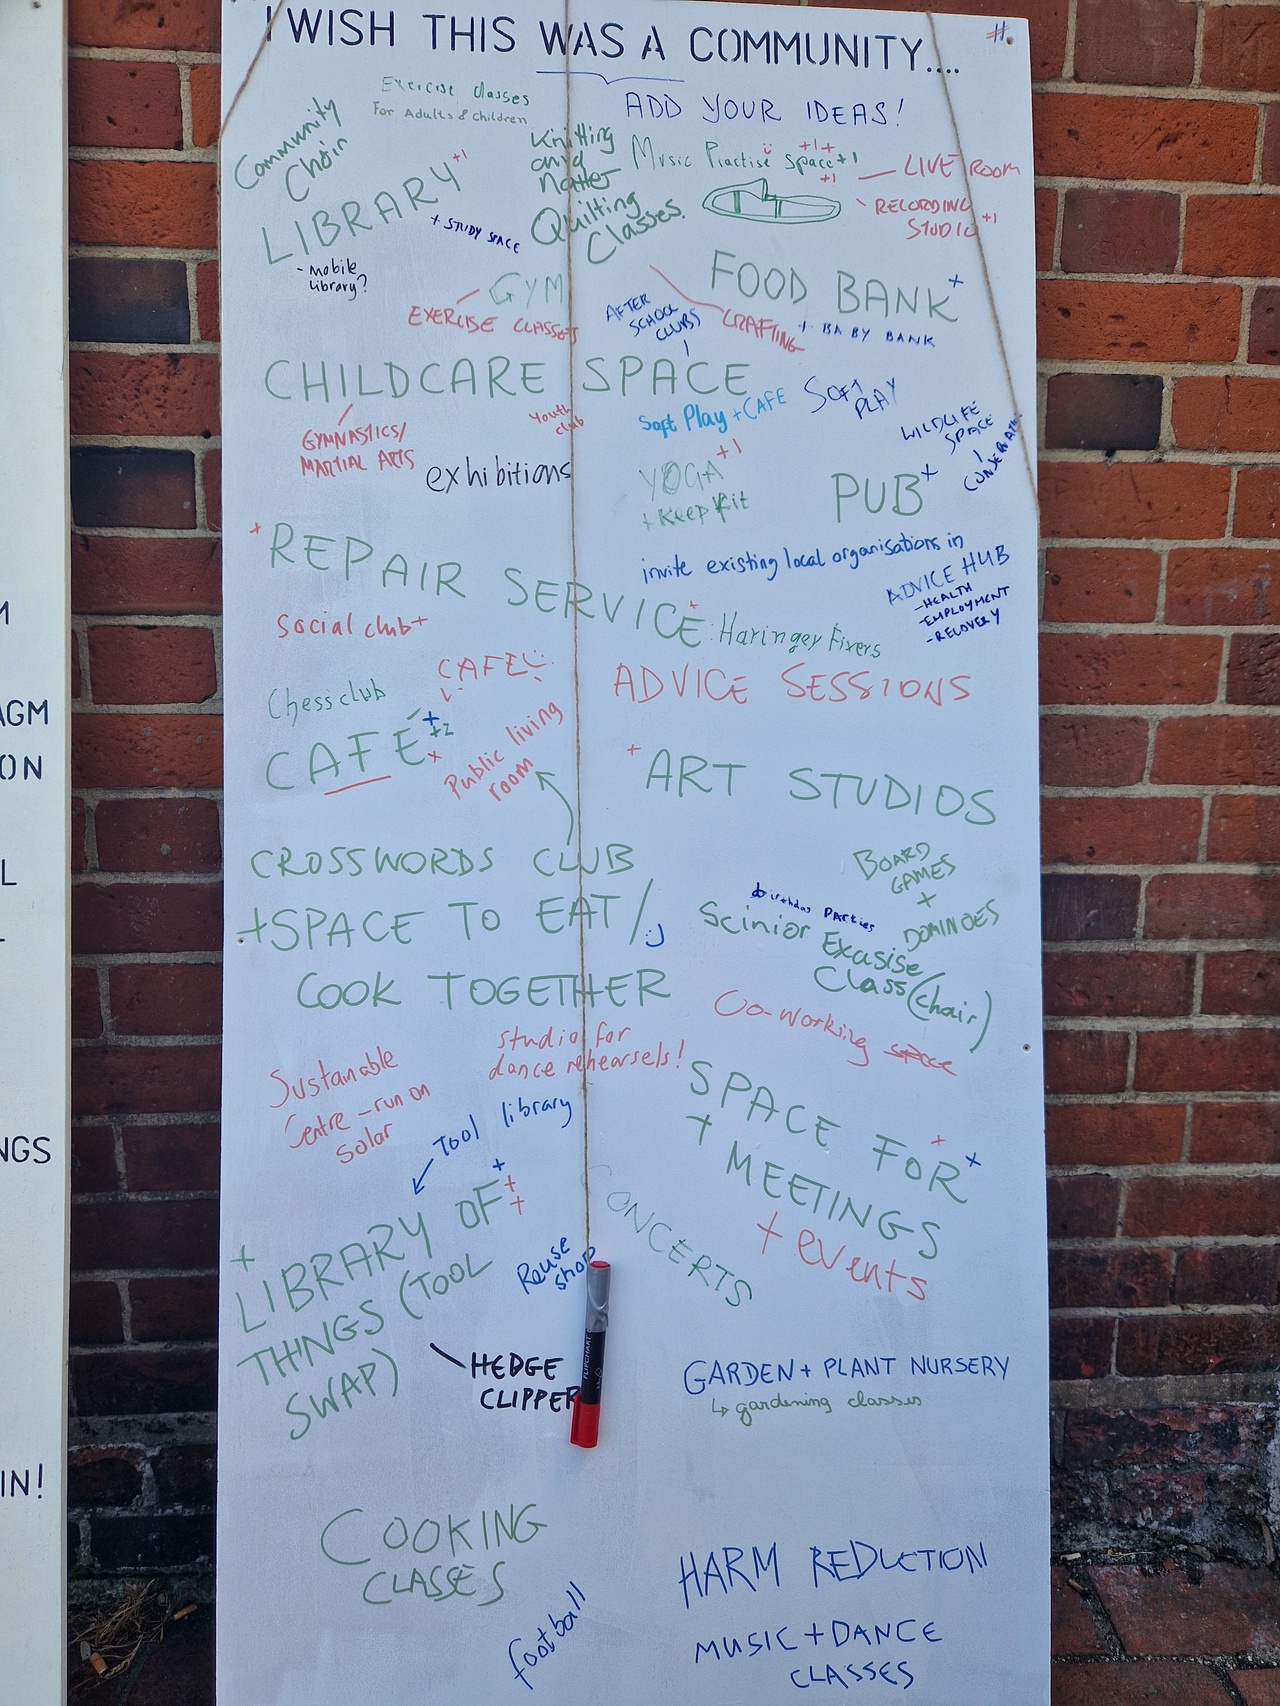 I WISH THIS WAS A COMMUNITY....
#
ADD YOUR IDEAS!
Exercise classes
For Adults & Children
Community
Choir
Knitting
and
Natter
Quilting
Classes.
Music Practise Space +1
+1+
+1
LIVE ROOM
RECORDING
STUDIO +1
LIBRARY +1
+ STUDY SPACE
- mobile
library?
GYM
EXERCISE CLASSES
AFTER
SCHOOL
CLUBS
CRAFTING
FOOD BANK +
+ BABY BANK
CHILDCARE SPACE
GYMNASTICS/
MARTIAL ARTS
Youth
club
Soft Play + CAFE
SOFT
PLAY
WILDLIFE
SPACE
exhibitions
YOGA +1
+ Keep Fit
PUB +
+ REPAIR SERVICE +
: Haringey Fixers
invite existing local organisations in
ADVICE HUB
- HEALTH
- EMPLOYMENT
- RECOVERY
Social club +
ADVICE SESSIONS
CAFE
Chess club
CAFÉ +
+2
+
Public living
room
+ ART STUDIOS
CROSSWORDS CLUB
+SPACE TO EAT/
COOK TOGETHER
BOARD
GAMES
+
DOMINOES
birthday parties
Scinior Exasise
Class (chair)
Co-working space
studio for
dance rehearsels!
Sustanable
Centre - run on
solar
Tool library
SPACE FOR + +
+ MEETINGS
+ events
+ LIBRARY OF +
+
+
THINGS (TOOL
SWAP)
CONCERTS
Reuse
shop
HEDGE
CLIPPER
FLIPCHART
GARDEN + PLANT NURSERY
↳ gardening classes
COOKING
CLASSES
football
HARM REDUCTION
MUSIC + DANCE
CLASSES
AGM
ON
L
NGS
IN!